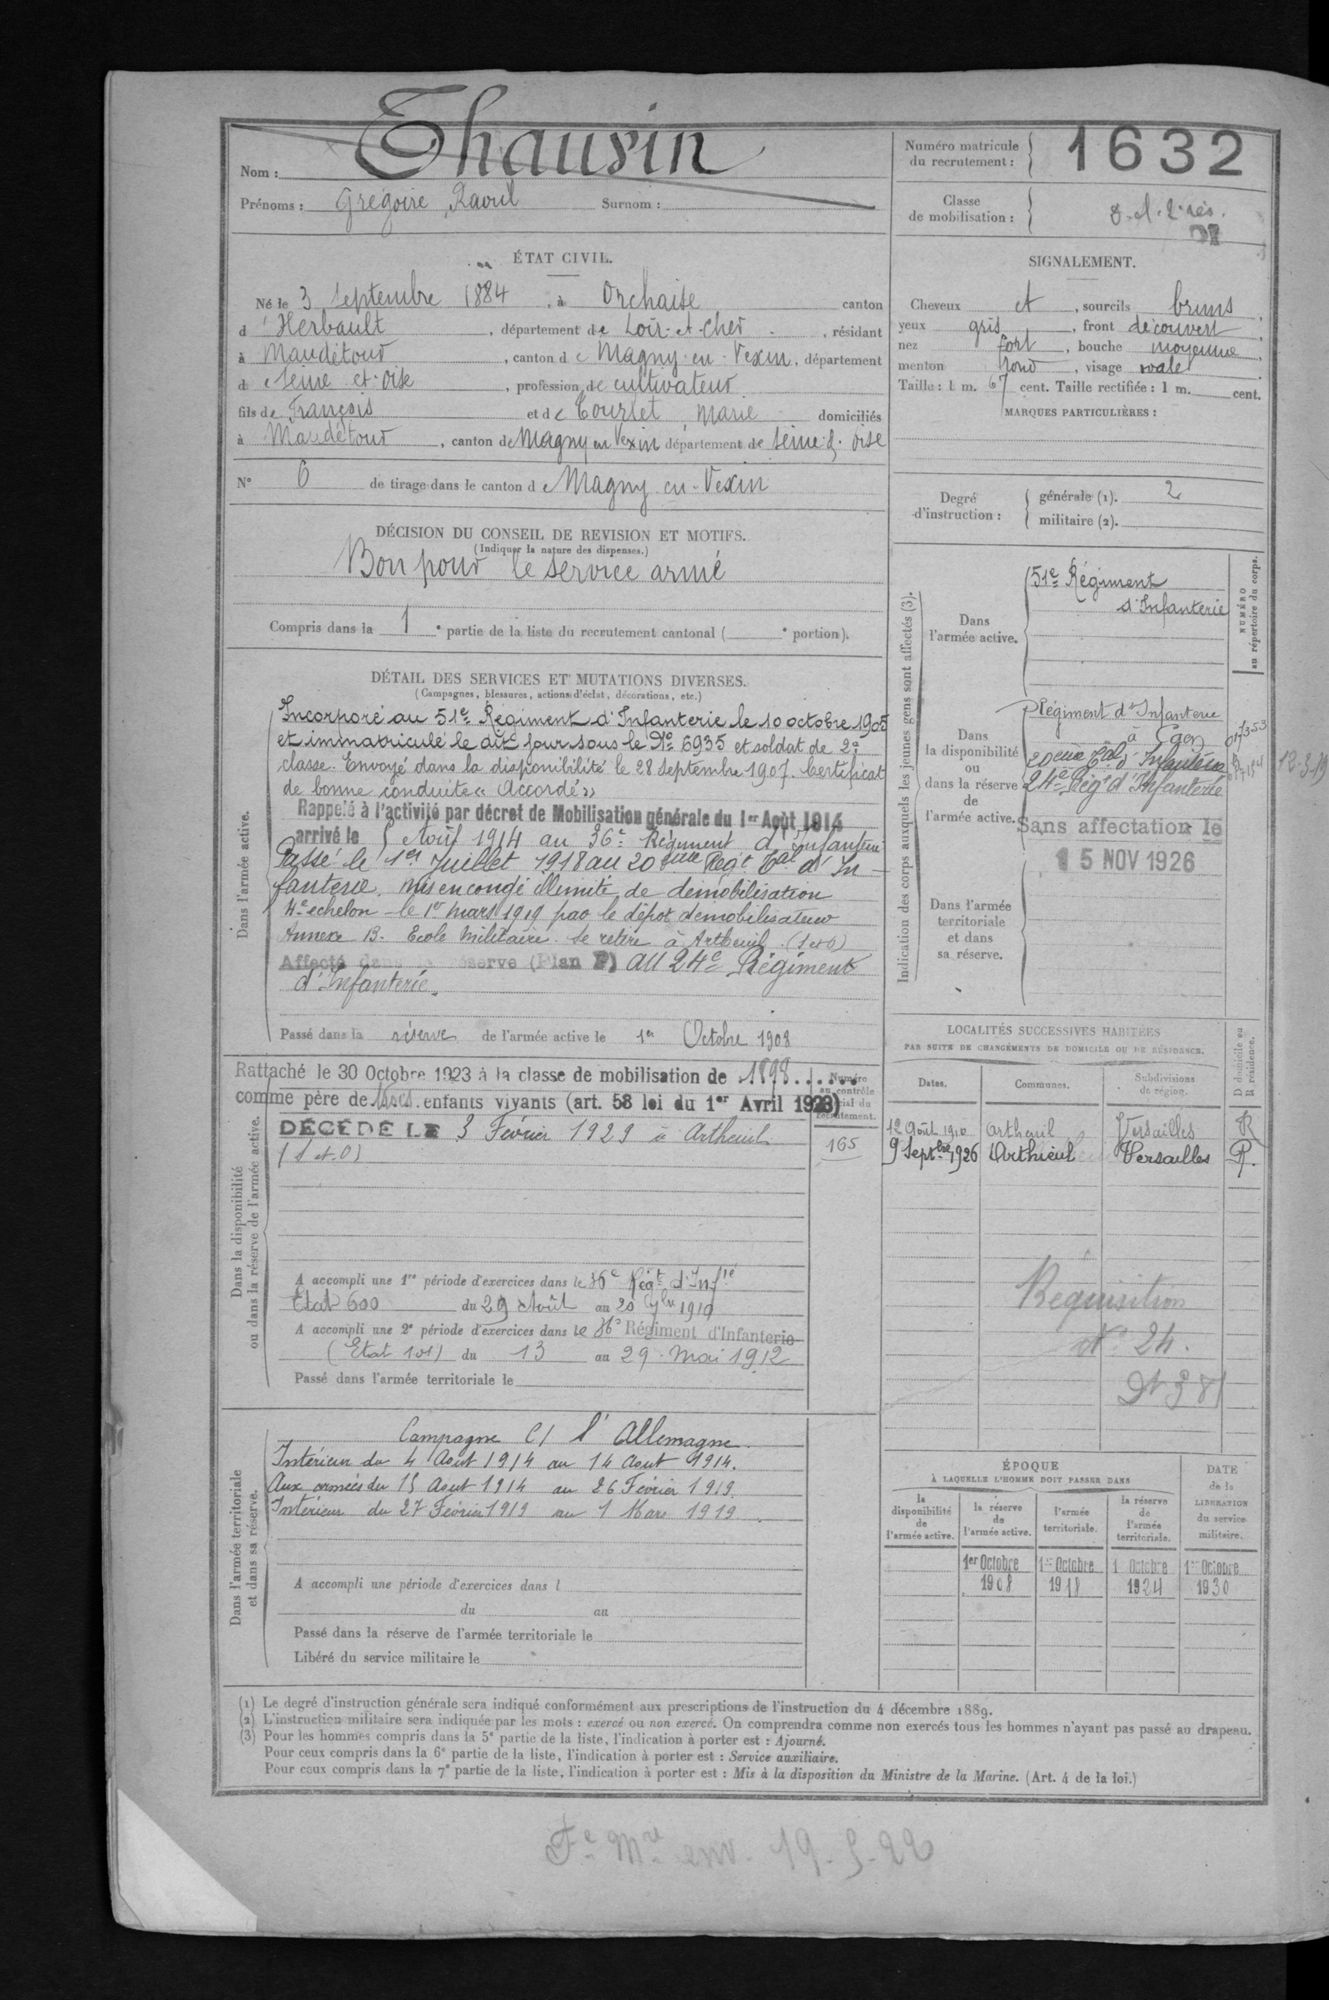 Nom : Thauvin
Prénoms : Grégoire Raoul Surnom :
Numéro matricule du recrutement : 1632
Classe de mobilisation :
ÉTAT CIVIL.
Né le 3 Septembre 1884, à Orchaise canton
d'Herbault, département de Loir-et-Cher, résidant
à Maudétour, canton de Magny-en-Vexin, département
de Seine-et-Oise, profession de cultivateur
fils de François et de Tourlet Marie domiciliés
à Maudétour, canton de Magny en Vexin département de Seine & Oise
N° 6 de tirage dans le canton de Magny-en-Vexin
SIGNALEMENT.
Cheveux et, sourcils bruns,
yeux gris, front découvert
nez fort, bouche moyenne,
menton rond, visage ovale
Taille : 1 m. 67 cent. Taille rectifiée : 1 m. cent.
MARQUES PARTICULIÈRES :
Degré d'instruction :
générale (1). 2
militaire (2).
DÉCISION DU CONSEIL DE REVISION ET MOTIFS.
(Indiquer la nature des dispenses.)
Bon pour le service armé
Compris dans la 1e partie de la liste du recrutement cantonal ( e portion).
DÉTAIL DES SERVICES ET MUTATIONS DIVERSES.
(Campagnes, blessures, actions d'éclat, décorations, etc.)
Dans l'armée active.
Incorporé au 51e Régiment d'Infanterie le 10 octobre 1905
et immatriculé le dit jour sous le No 6935 et soldat de 2e
classe. Envoyé dans la disponibilité le 28 Septembre 1907. Certificat
de bonne conduite « Accordé »
Rappelé à l'activité par décret de Mobilisation générale du 1er Août 1914
arrivé le 5 Août 1914 au 36e Régiment d'Infanterie
Passé le 1er Juillet 1918 au 20ème Régt Tal d'In-
fanterie. Mis en congé illimité de démobilisation
4e échelon le 1er mars 1919 par le dépôt démobilisateur
Annexe B. Ecole Militaire. Se retire à Artheuil. (S et O)
Affecté dans la réserve (Plan P) au 24e Régiment
d'Infanterie.
Passé dans la réserve de l'armée active le 1er Octobre 1908
Indication des corps auxquels les jeunes gens sont affectés (3).
Dans l'armée active.
51e Régiment
d'Infanterie
NUMÉRO au répertoire du corps.
Dans la disponibilité ou dans la réserve de l'armée active.
Régiment d'Infanterie
à Caen
20ème Tal d'Infanterie
24e Régt d'Infanterie
017353
12-3-19
Sans affectation le
15 NOV 1926
Dans l'armée territoriale et dans sa réserve.
Dans la disponibilité ou dans la réserve de l'armée active.
Rattaché le 30 Octobre 1923 à la classe de mobilisation de 1898......
comme père de trois enfants vivants (art. 58 loi du 1er Avril 1923)
DÉCÉDÉ LE 3 Février 1929 à Artheuil
(S et O)
Numéro au contrôle spécial du recrutement.
165
A accompli une 1re période d'exercices dans le 36e Régt d'Inf ie
Etat 600 du 29 Août au 20 7bre 1910
A accompli une 2e période d'exercices dans le 36e Régiment d'Infanterie
(Etat 101) du 13 au 29 Mai 1912
Passé dans l'armée territoriale le
LOCALITÉS SUCCESSIVES HABITÉES
PAR SUITE DE CHANGEMENTS DE DOMICILE OU DE RÉSIDENCE.
Dates. Communes. Subdivisions de région. D domicile ou R résidence.
12 Août 1910 Artheuil Versailles R
9 Septbre 1926 Arthieul Versailles R.
Réquisition
No 24.
Dans l'armée territoriale et dans sa réserve.
Campagne C/ l'Allemagne.
Intérieur du 4 Août 1914 au 14 Août 1914.
Aux armées du 15 Août 1914 au 26 Février 1919.
Intérieur du 27 Février 1919 au 1 Mars 1919.
A accompli une période d'exercices dans l
du au
Passé dans la réserve de l'armée territoriale le
Libéré du service militaire le
ÉPOQUE
À LAQUELLE L'HOMME DOIT PASSER DANS
la disponibilité de l'armée active. la réserve de l'armée active. l'armée territoriale. la réserve de l'armée territoriale. DATE de la LIBÉRATION du service militaire.
1er Octobre 1er Octobre 1 Octobre 1er Octobre
1908 1918 1924 1930
(1) Le degré d'instruction générale sera indiqué conformément aux prescriptions de l'instruction du 4 décembre 1889.
(2) L'instruction militaire sera indiquée par les mots : exercé ou non exercé. On comprendra comme non exercés tous les hommes n'ayant pas passé au drapeau.
(3) Pour les hommes compris dans la 5e partie de la liste, l'indication à porter est : Ajourné.
Pour ceux compris dans la 6e partie de la liste, l'indication à porter est : Service auxiliaire.
Pour ceux compris dans la 7e partie de la liste, l'indication à porter est : Mis à la disposition du Ministre de la Marine. (Art. 4 de la loi.)
Fe Mle env. 19-5-22